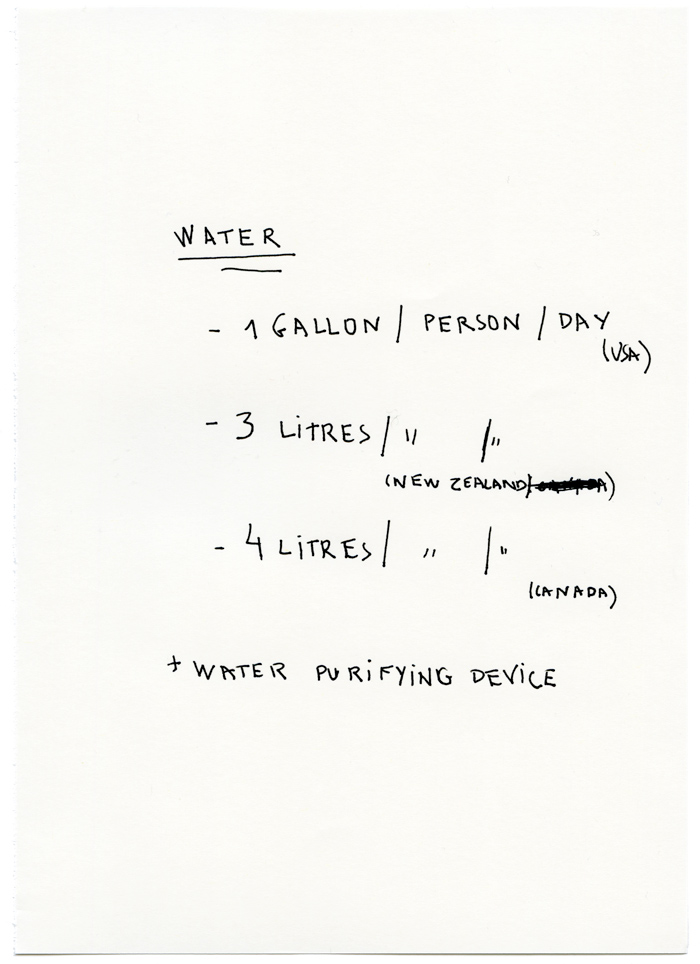 WATER
- 1 GALLON / PERSON / DAY
(USA)
- 3 LITRES / " / "
(NEW ZEALAND)
- 4 LITRES / " / "
(CANADA)
+ WATER PURIFYING DEVICE